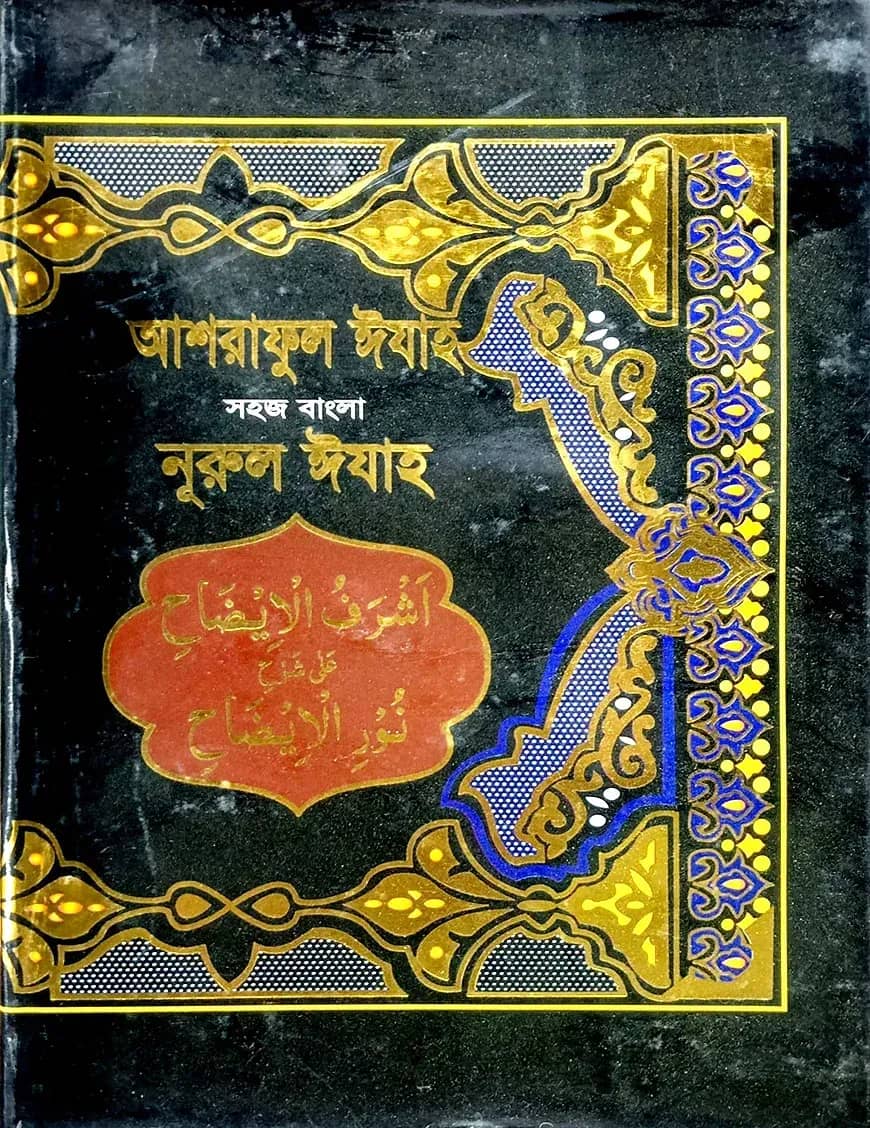 আশরাফুল ঈযাহ
সহজ বাংলা
নূরুল ঈযাহ
اَشْرَفُ الْاِيْضَاحِ
عَلٰى شَرْحِ
نُوْرِ الْاِيْضَاحِ